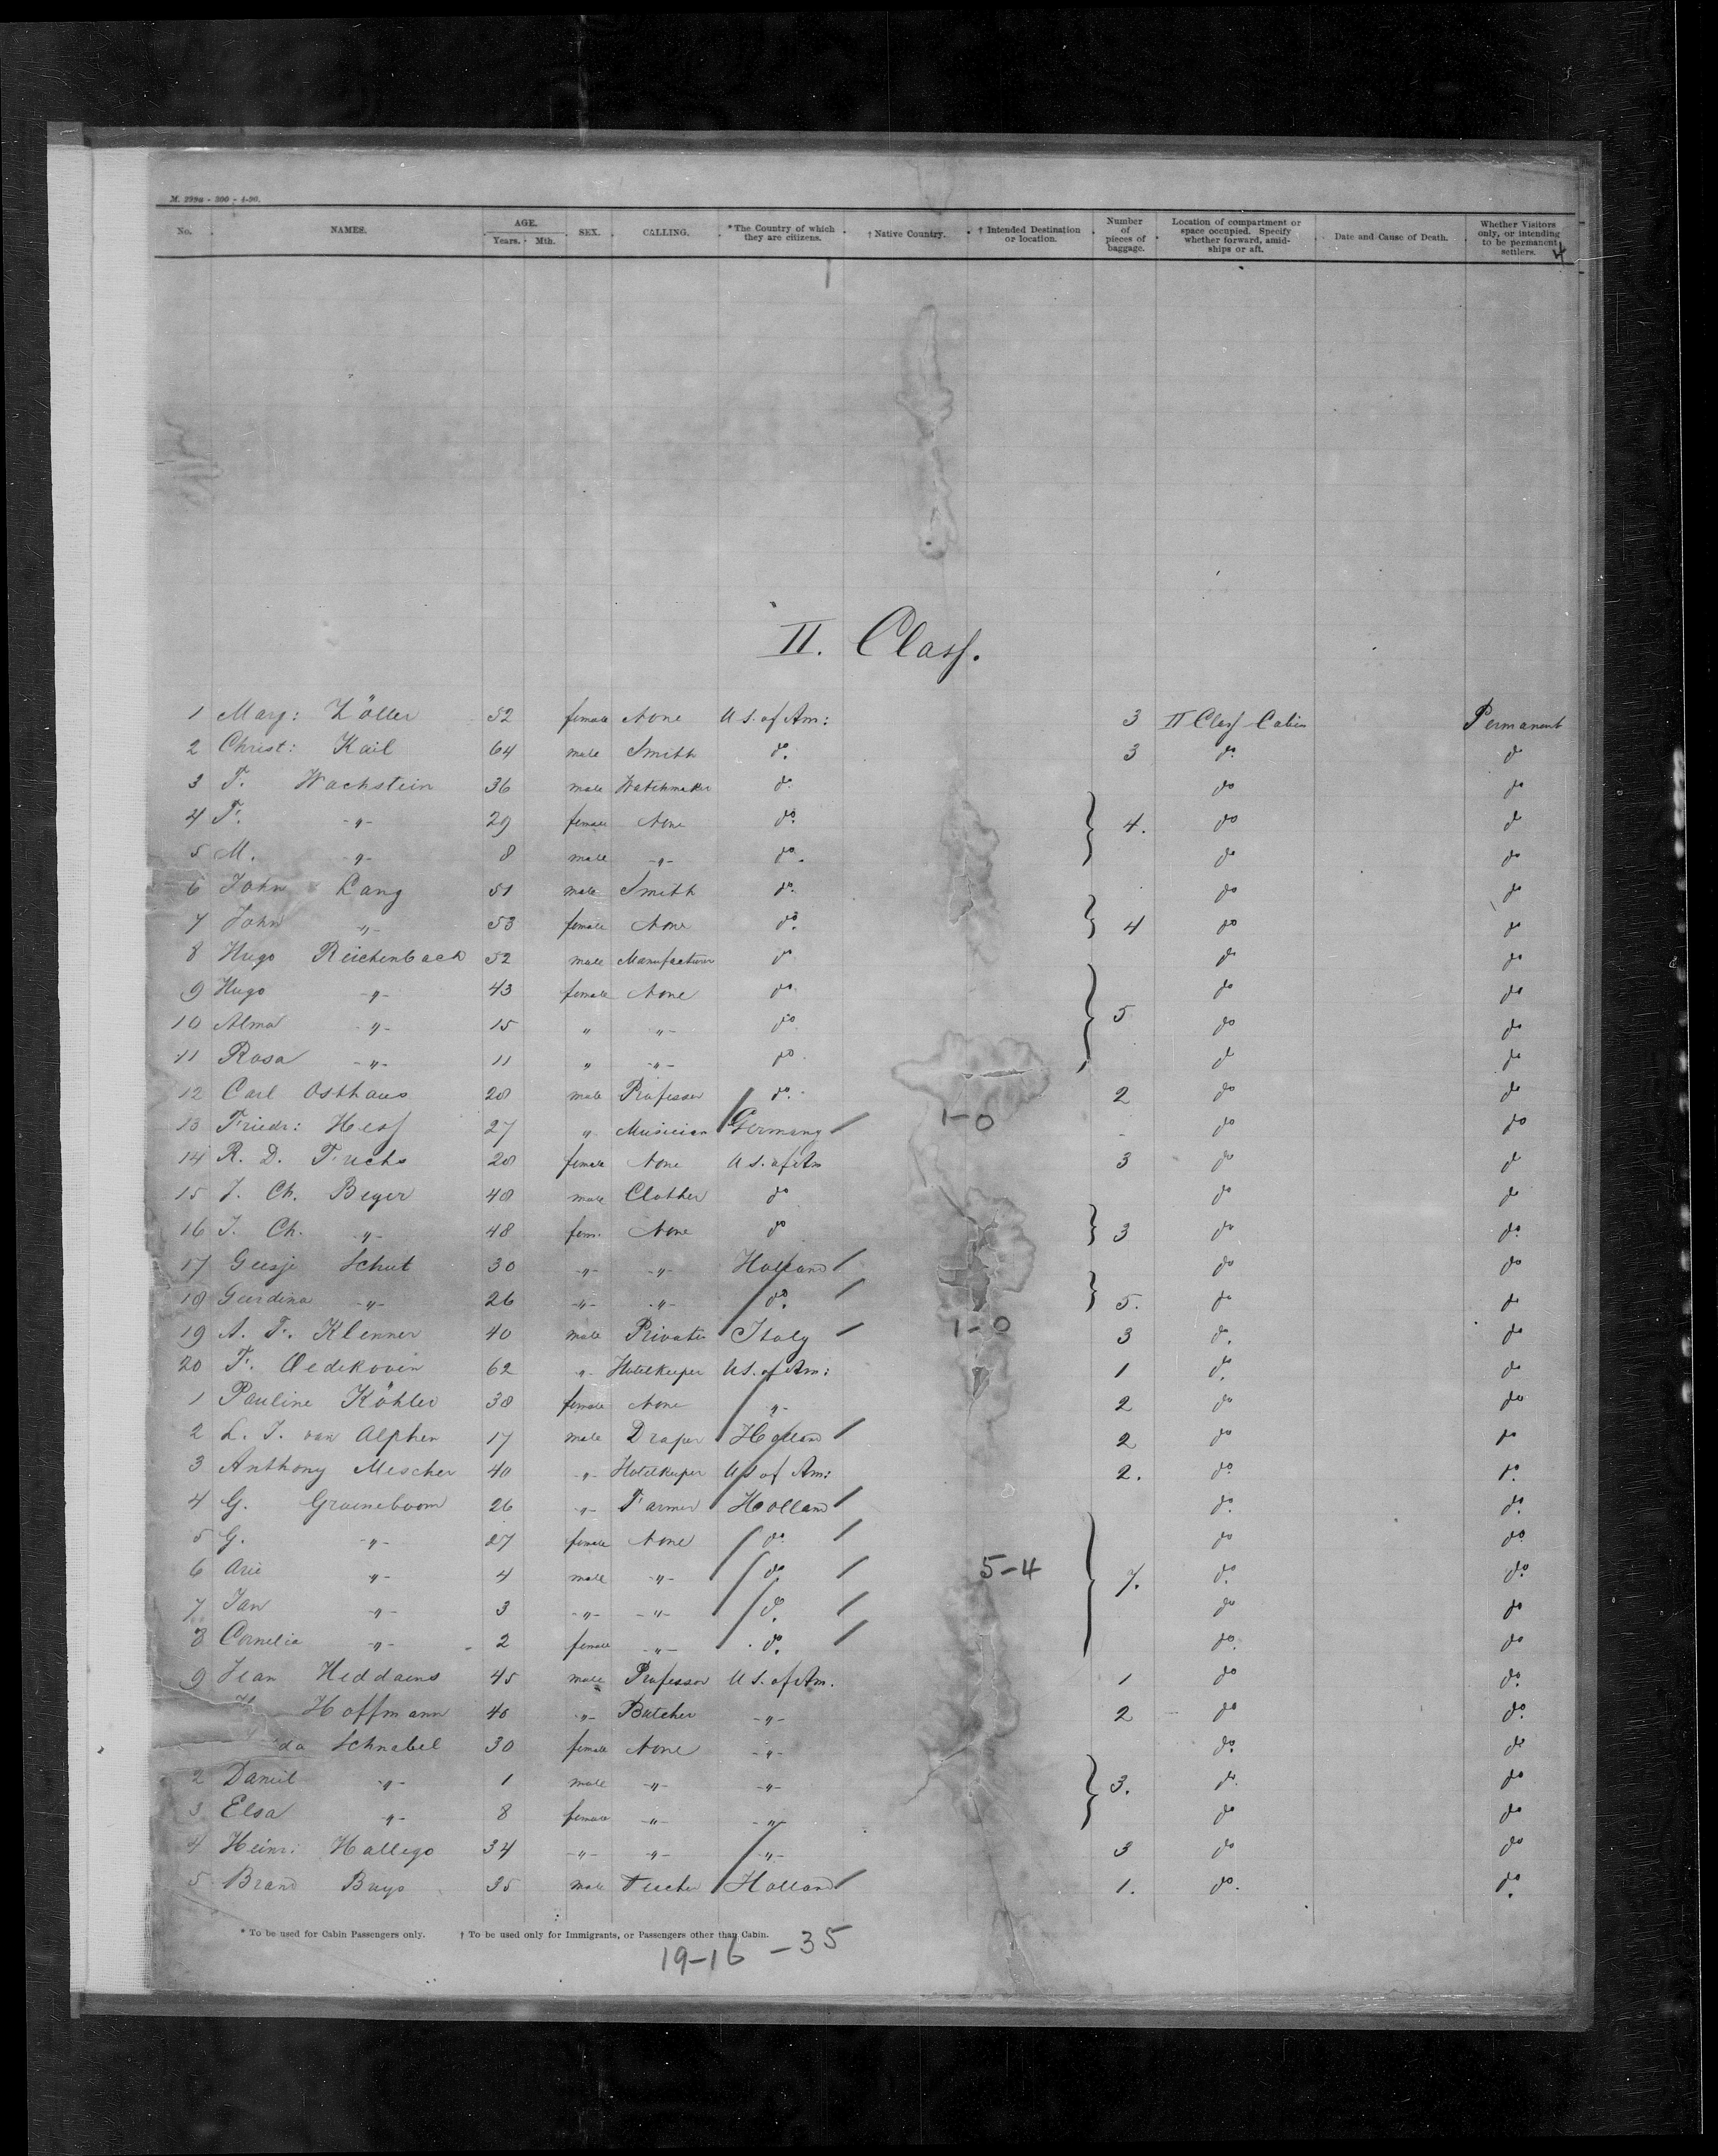 M. 299a - 300 - 4-90.
No. NAMES. AGE. Years. Mth. SEX. CALLING. *The Country of which they are citizens. † Native Country. † Intended Destination or location. Number of pieces of baggage. Location of compartment or space occupied. Specify whether forward, amidships or aft. Date and Cause of Death. Whether Visitors only, or intending to be permanent settlers.
4
II. Class.
1 Marg: Zöller 52 female None U.S. of Am: 3 II Class Cabin Permanent
2 Christ: Kail 64 male Smith do. 3 do. do
3 F. Wachstein 36 male Watchmaker do. do do
4 F. -"- 29 female None do. 4. do do
5 M. -"- 8 male -"- do. do do
6 John Lang 51 male Smith do. do do
7 John -"- 53 female None do. 4 do do
8 Hugo Reichenbach 52 male Manufacturer do do do
9 Hugo -"- 43 female None do do do
10 Alma -"- 15 " -"- do 5 do do
11 Rosa -"- 11 " -"- do. do do
12 Carl Osthaus 28 male Professor do. 2 do do
13 Friedr: Hess 27 " Musician Germany 1-0 - do do
14 R. D. Fuchs 28 female None U.S. of Am 3 do do
15 J. Ch. Beyer 48 male Clothier do do do
16 J. Ch. -"- 48 fem. None do 3 do do.
17 Geesje Schut 30 -"- -"- Holland do do
18 Geerdina -"- 26 -"- -"- do. 5. do do
19 A. F. Klenner 40 male Private Italy 1-0 3 do. do
20 F. Oedekoven 62 -"- Hotelkeeper U.S. of Am: 1 do. do
1 Pauline Köhler 38 female None -"- 2 do do
2 L. J. van Alphen 17 male Draper Holland 2 do do
3 Anthony Mescher 40 -"- Hotelkeeper U.S. of Am: 2. do. do.
4 G. Groeneboom 26 -"- Farmer Holland do. do.
5 G. -"- 27 female None do. do do
6 Arie -"- 4 male -"- do. 5-4 7. do. do.
7 Jan -"- 3 -"- -"- do. do do
8 Cornelia -"- 2 female -"- do. do. do
9 Jean Heddaens 45 male Professor U.S. of Am. 1 do do.
H Hoffmann 40 -"- Butcher -"- 2 do do.
da Schnabel 30 female None -"- do. do
2 Daniel -"- 1 male -"- -"- 3. do. do
3 Elsa -"- 8 female -"- -"- do do
4 Heinr: Hallego 34 -"- -"- -"- 3 do do
5 Brand Buys 35 male Holland 1. do. do.
* To be used for Cabin Passengers only. † To be used only for Immigrants, or Passengers other than Cabin.
19-16 - 35